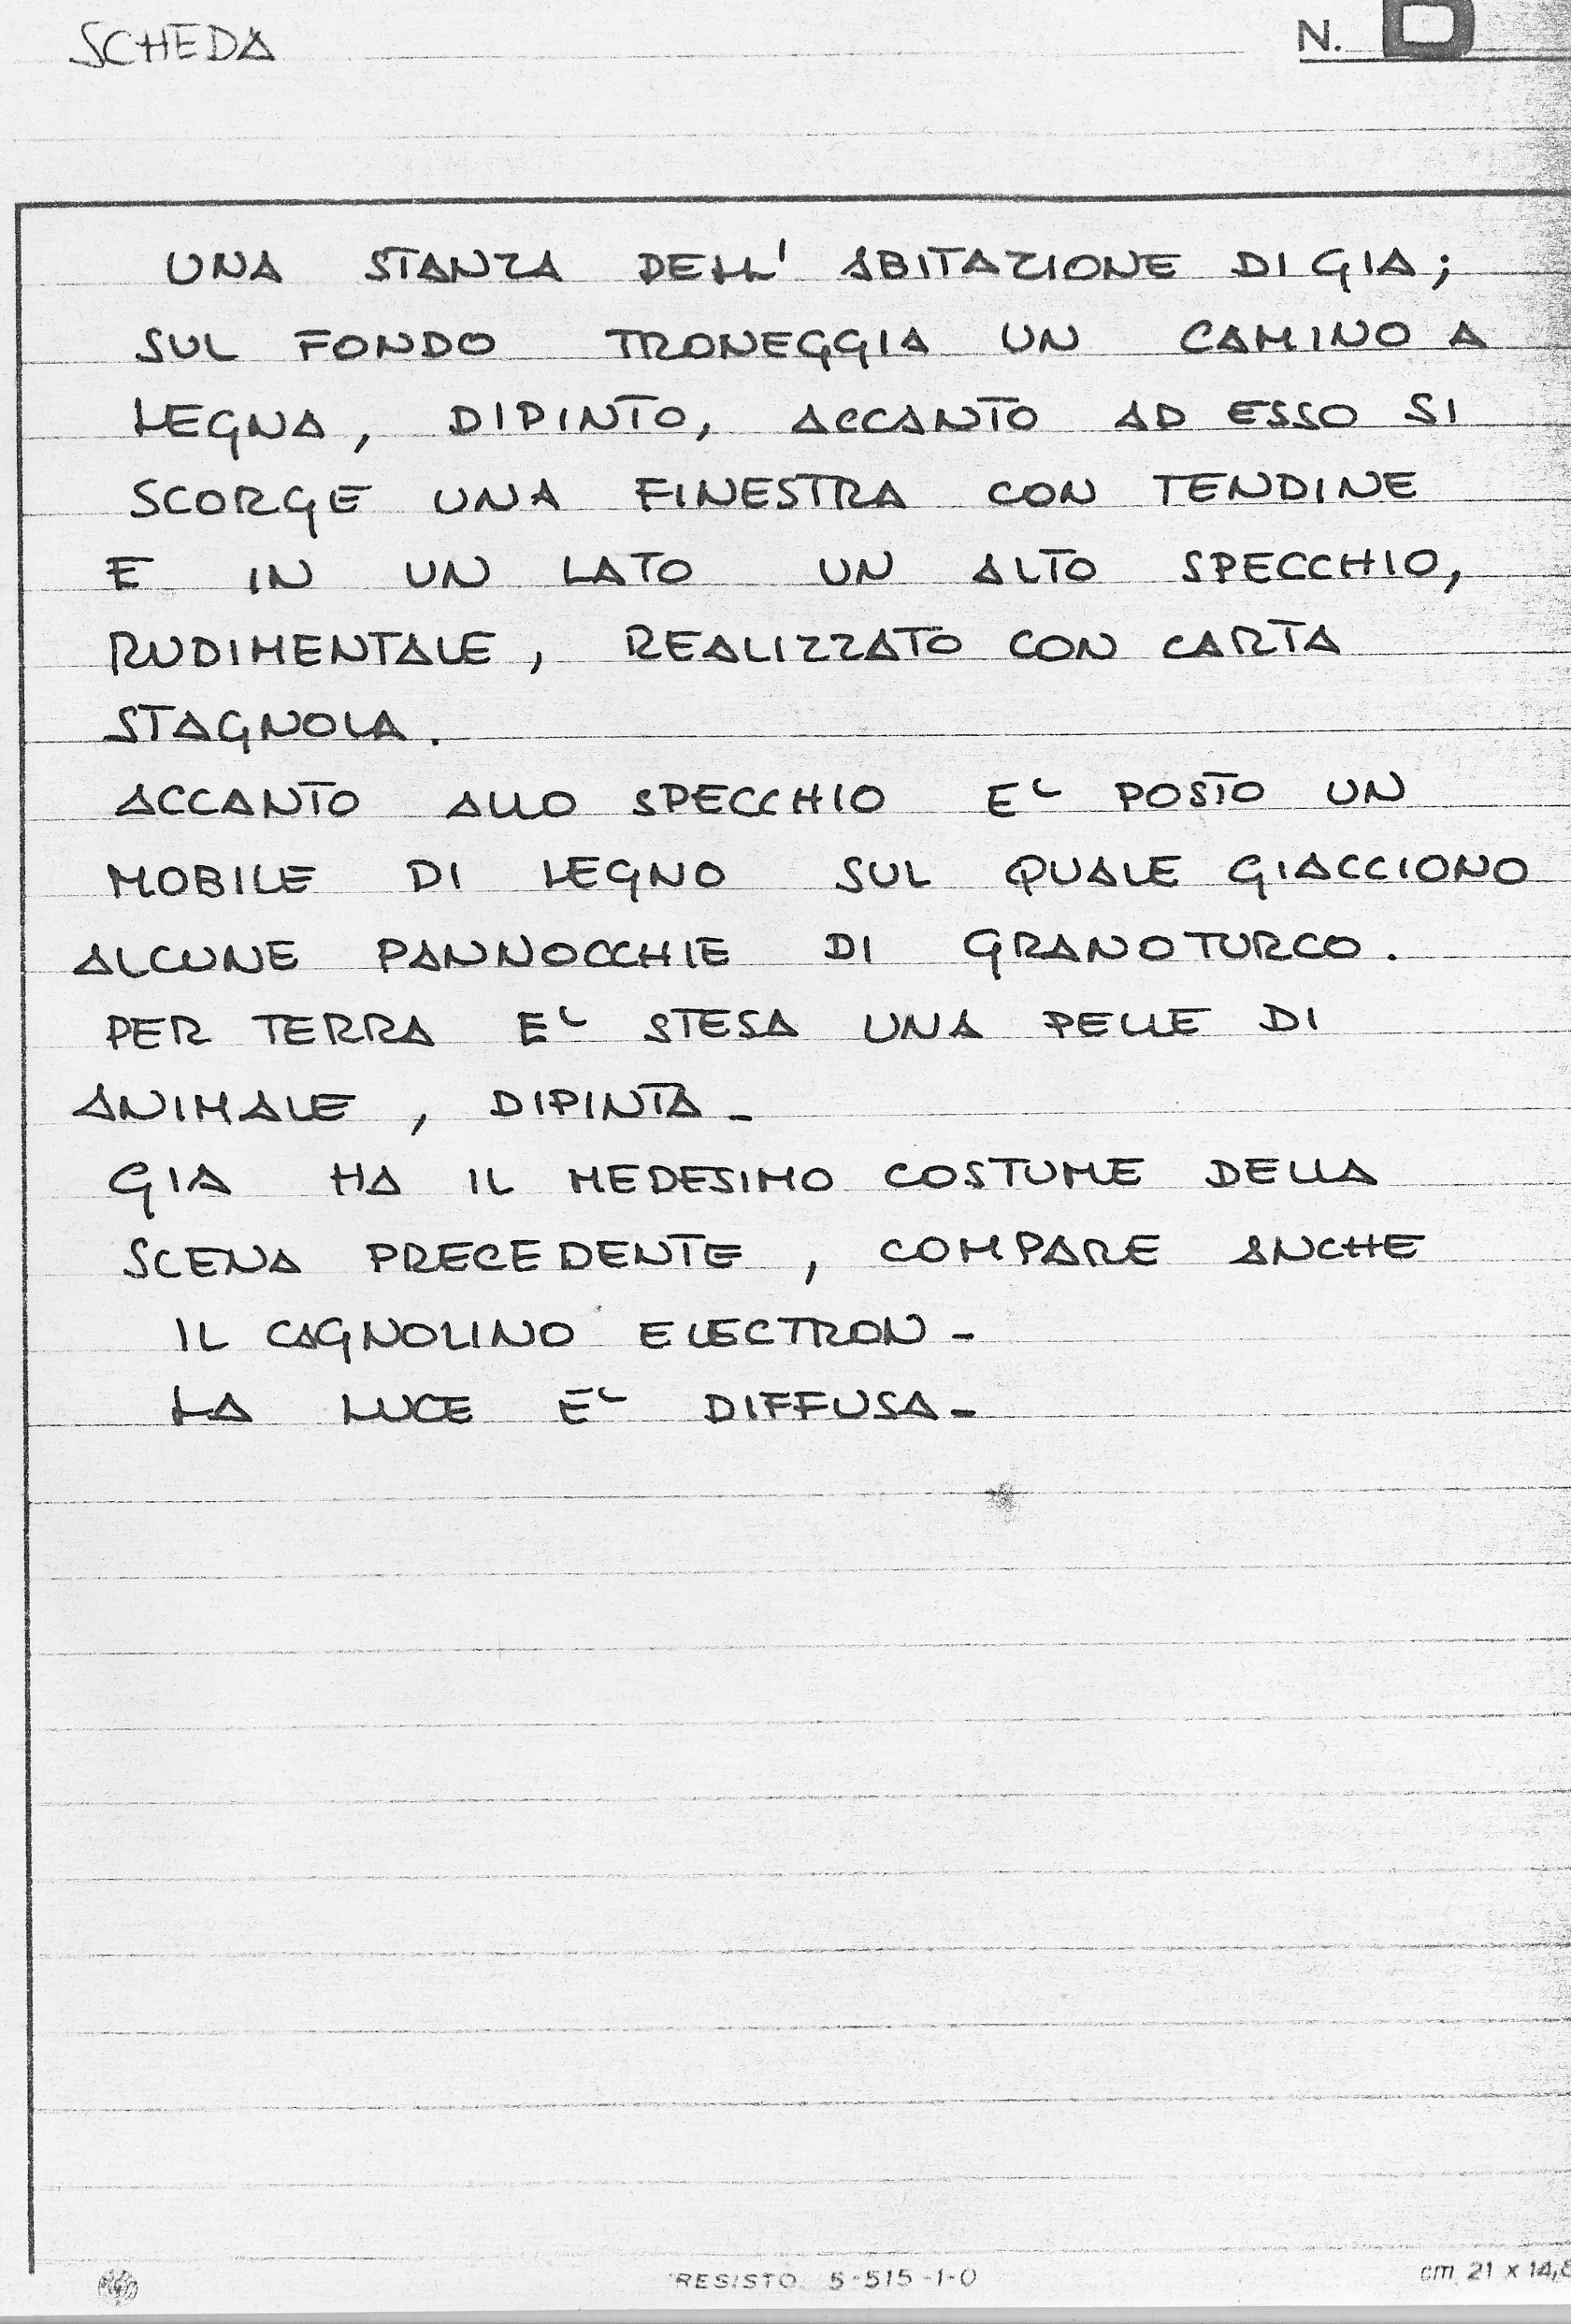 SCHEDA
N. D
UNA STANZA DELL' ABITAZIONE DI GIA;
SUL FONDO TRONEGGIA UN CAMINO A
LEGNA, DIPINTO, ACCANTO AD ESSO SI
SCORGE UNA FINESTRA CON TENDINE
E IN UN LATO UN ALTO SPECCHIO,
RUDIMENTALE, REALIZZATO CON CARTA
STAGNOLA.
ACCANTO ALLO SPECCHIO E' POSTO UN
MOBILE DI LEGNO SUL QUALE GIACCIONO
ALCUNE PANNOCCHIE DI GRANOTURCO.
PER TERRA E' STESA UNA PELLE DI
ANIMALE, DIPINTA -
GIA HA IL MEDESIMO COSTUME DELLA
SCENA PRECEDENTE, COMPARE ANCHE
IL CAGNOLINO ELECTRON -
LA LUCE E' DIFFUSA -
RESISTO 5-515-1-0
cm. 21 x 14,8